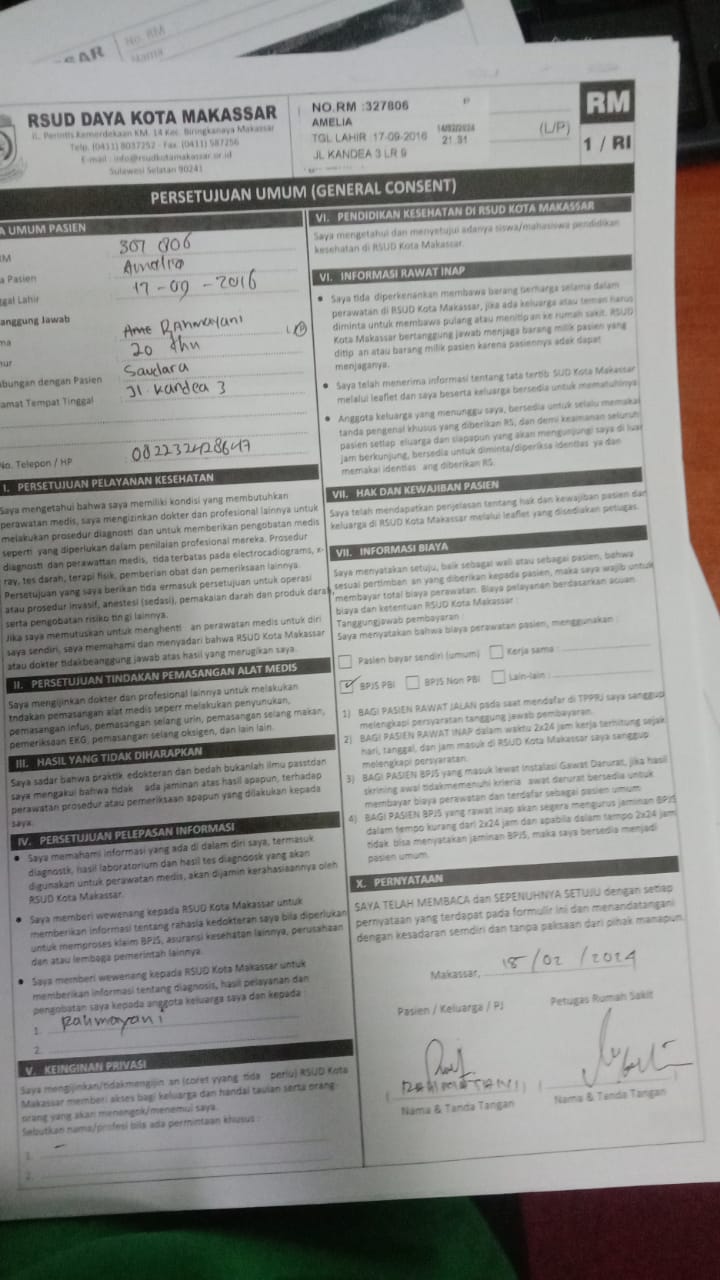 No. RM
Nama
RSUD DAYA KOTA MAKASSAR
JL. Perintis Kemerdekaan KM. 14 Kec. Biringkanaya Makassar
Telp. (0411) 8037252 - Fax. (0411) 587256
E-mail : info@rsudkotamakassar.or.id
Sulawesi Selatan 90241
NO.RM :327806 P
AMELIA
TGL LAHIR 17-09-2016 21:31
JL KANDEA 3 LR 9
(L/P)
RM
1 / RI
PERSETUJUAN UMUM (GENERAL CONSENT)
A UMUM PASIEN
RM
a Pasien Amelia
gal Lahir 17-09-2016
anggung Jawab
ma Rahmayani
mur 20 thn
ubungan dengan Pasien Saudara
amat Tempat Tinggal Jl. Kandea 3
No. Telepon / HP
I. PERSETUJUAN PELAYANAN KESEHATAN
Saya mengetahui bahwa saya memiliki kondisi yang membutuhkan
perawatan medis, saya mengizinkan dokter dan profesional lainnya untuk
melakukan prosedur diagnosti dan untuk memberikan pengobatan medis
seperti yang diperlukan dalam penilaian profesional mereka. Prosedur
diagnosti dan perawattan medis, tida terbatas pada electrocadiograms, x-
ray, tes darah, terapi fisik, pemberian obat dan pemeriksaan lainnya.
Persetujuan yang saya berikan tida ermasuk persetujuan untuk operasi
atau prosedur invasif, anestesi (sedasi), pemakaian darah dan produk darah,
serta pengobatan risiko tin gi lainnya.
Jika saya memutuskan untuk menghenti an perawatan medis untuk diri
saya sendiri, saya memahami dan menyadari bahwa RSUD Kota Makassar
atau dokter tidakbeanggung jawab atas hasil yang merugikan saya.
II. PERSETUJUAN TINDAKAN PEMASANGAN ALAT MEDIS
Saya mengijinkan dokter dan profesional lainnya untuk melakukan
tndakan pemasangan alat medis seperr melakukan penyunukan,
pemasangan infus, pemasangan selang urin, pemasangan selang makan,
pemeriksaan EKG, pemasangan selang oksigen, dan lain lain.
III. HASIL YANG TIDAK DIHARAPKAN
Saya sadar bahwa praktik edokteran dan bedah bukanlah ilmu passtdan
saya mengakui bahwa tidak ada jaminan atas hasil apapun, terhadap
perawatan prosedur atau pemeriksaan apapun yang dilakukan kepada
saya.
IV. PERSETUJUAN PELEPASAN INFORMASI
• Saya memahami informasi yang ada di dalam diri saya, termasuk
diagnostk, hasil laboratorium dan hasil tes diagnoosk yang akan
digunakan untuk perawatan medis, akan dijamin kerahasiaannya oleh
RSUD Kota Makassar.
• Saya memberi wewenang kepada RSUD Kota Makassar untuk
memberikan informasi tentang rahasia kedokteran saya bila diperlukan
untuk memproses klaim BPJS, asuransi kesehatan lainnya, perusahaan
dan atau lembaga pemerintah lainnya.
• Saya memberi wewenang kepada RSUD Kota Makassar untuk
memberikan informasi tentang diagnosis, hasil pelayanan dan
pengobatan saya kepada anggota keluarga saya dan kepada
1. Rahmayani
2.
V. KEINGINAN PRIVASI
Saya mengijinkan/tidakmengijin an (coret yyang tida perlu) RSUD Kota
Makassar memberi akses bagi keluarga dan handai taulan serta orang-
orang yang akan menengok/menemui saya.
Sebutkan nama/profesi bila ada permintaan khusus :
1. -
2.
VI. PENDIDIKAN KESEHATAN DI RSUD KOTA MAKASSAR
Saya mengetahui dan menyetujui adanya siswa/mahasiswa pendidikan
kesehatan di RSUD Kota Makassar.
VI. INFORMASI RAWAT INAP
• Saya tida diperkenankan membawa barang berharga selama dalam
perawatan di RSUD Kota Makassar, jika ada keluarga atau teman harus
diminta untuk membawa pulang atau menitip an ke rumah sakit. RSUD
Kota Makassar bertanggung jawab menjaga barang milik pasien yang
ditip an atau barang milik pasien karena pasiennya adak dapat
menjaganya.
• Saya telah menerima informasi tentang tata tertib SUD Kota Makassar
melalui leaflet dan saya beserta keluarga bersedia untuk mematuhinya
• Anggota keluarga yang menunggu saya, bersedia untuk selalu memakai
tanda pengenal khusus yang diberikan RS, dan demi keamanan seluruh
pasien setiap eluarga dan siapapun yang akan mengunjungi saya di luar
jam berkunjung, bersedia untuk diminta/diperiksa identias ya dan
memakai identias ang diberikan RS.
VII. HAK DAN KEWAJIBAN PASIEN
Saya telah mendapatkan penjelasan tentang hak dan kewajiban pasien dan
keluarga di RSUD Kota Makassar melalui leafles yang disediakan petugas.
VII. INFORMASI BIAYA
Saya menyatakan setuju, baik sebagai wali atau sebagai pasien, bahwa
sesuai pertimban an yang diberikan kepada pasien, maka saya wajib untuk
membayar total biaya perawatan. Biaya pelayanan berdasarkan acuan
biaya dan ketentuan RSUD Kota Makassar :
Tanggungjawab pembayaran :
Saya menyatakan bahwa biaya perawatan pasien, menggunakan :
Pasien bayar sendiri (umum) Kerja sama :
BPJS PBI BPJS Non PBI Lain-lain :
1) BAGI PASIEN RAWAT JALAN pada saat mendafar di TPPRJ saya sanggup
melengkapi persyaratan tanggung jawab pembayaran.
2) BAGI PASIEN RAWAT INAP dalam waktu 2x24 jam kerja terhitung sejak
hari, tanggal, dan jam masuk di RSUD Kota Makassar saya sanggup
melengkapi persyaratan.
3) BAGI PASIEN BPJS yang masuk lewat Instalasi Gawat Darurat, jika hasil
skrining awal tidakmemenuhi krieria awat derurat bersedia untuk
membayar biaya perawatan dan terdafar sebagai pasien umum
4) BAGI PASIEN BPJS yang rawat inap akan segera mengurus jaminan BPJS
dalam tempo kurang dari 2x24 jam dan apabila dalam tempo 2x24 jam
tidak bisa menyatakan jaminan BPJS, maka saya bersedia menjadi
pasien umum.
X. PERNYATAAN
SAYA TELAH MEMBACA dan SEPENUHNYA SETUJU dengan setiap
pernyataan yang terdapat pada formulir ini dan menandatangani
dengan kesadaran semdiri dan tanpa paksaan dari pihak manapun.
Makassar, 15/02/2024
Pasien / Keluarga / PJ Petugas Rumah Sakit
Nama & Tanda Tangan Nama & Tanda Tangan